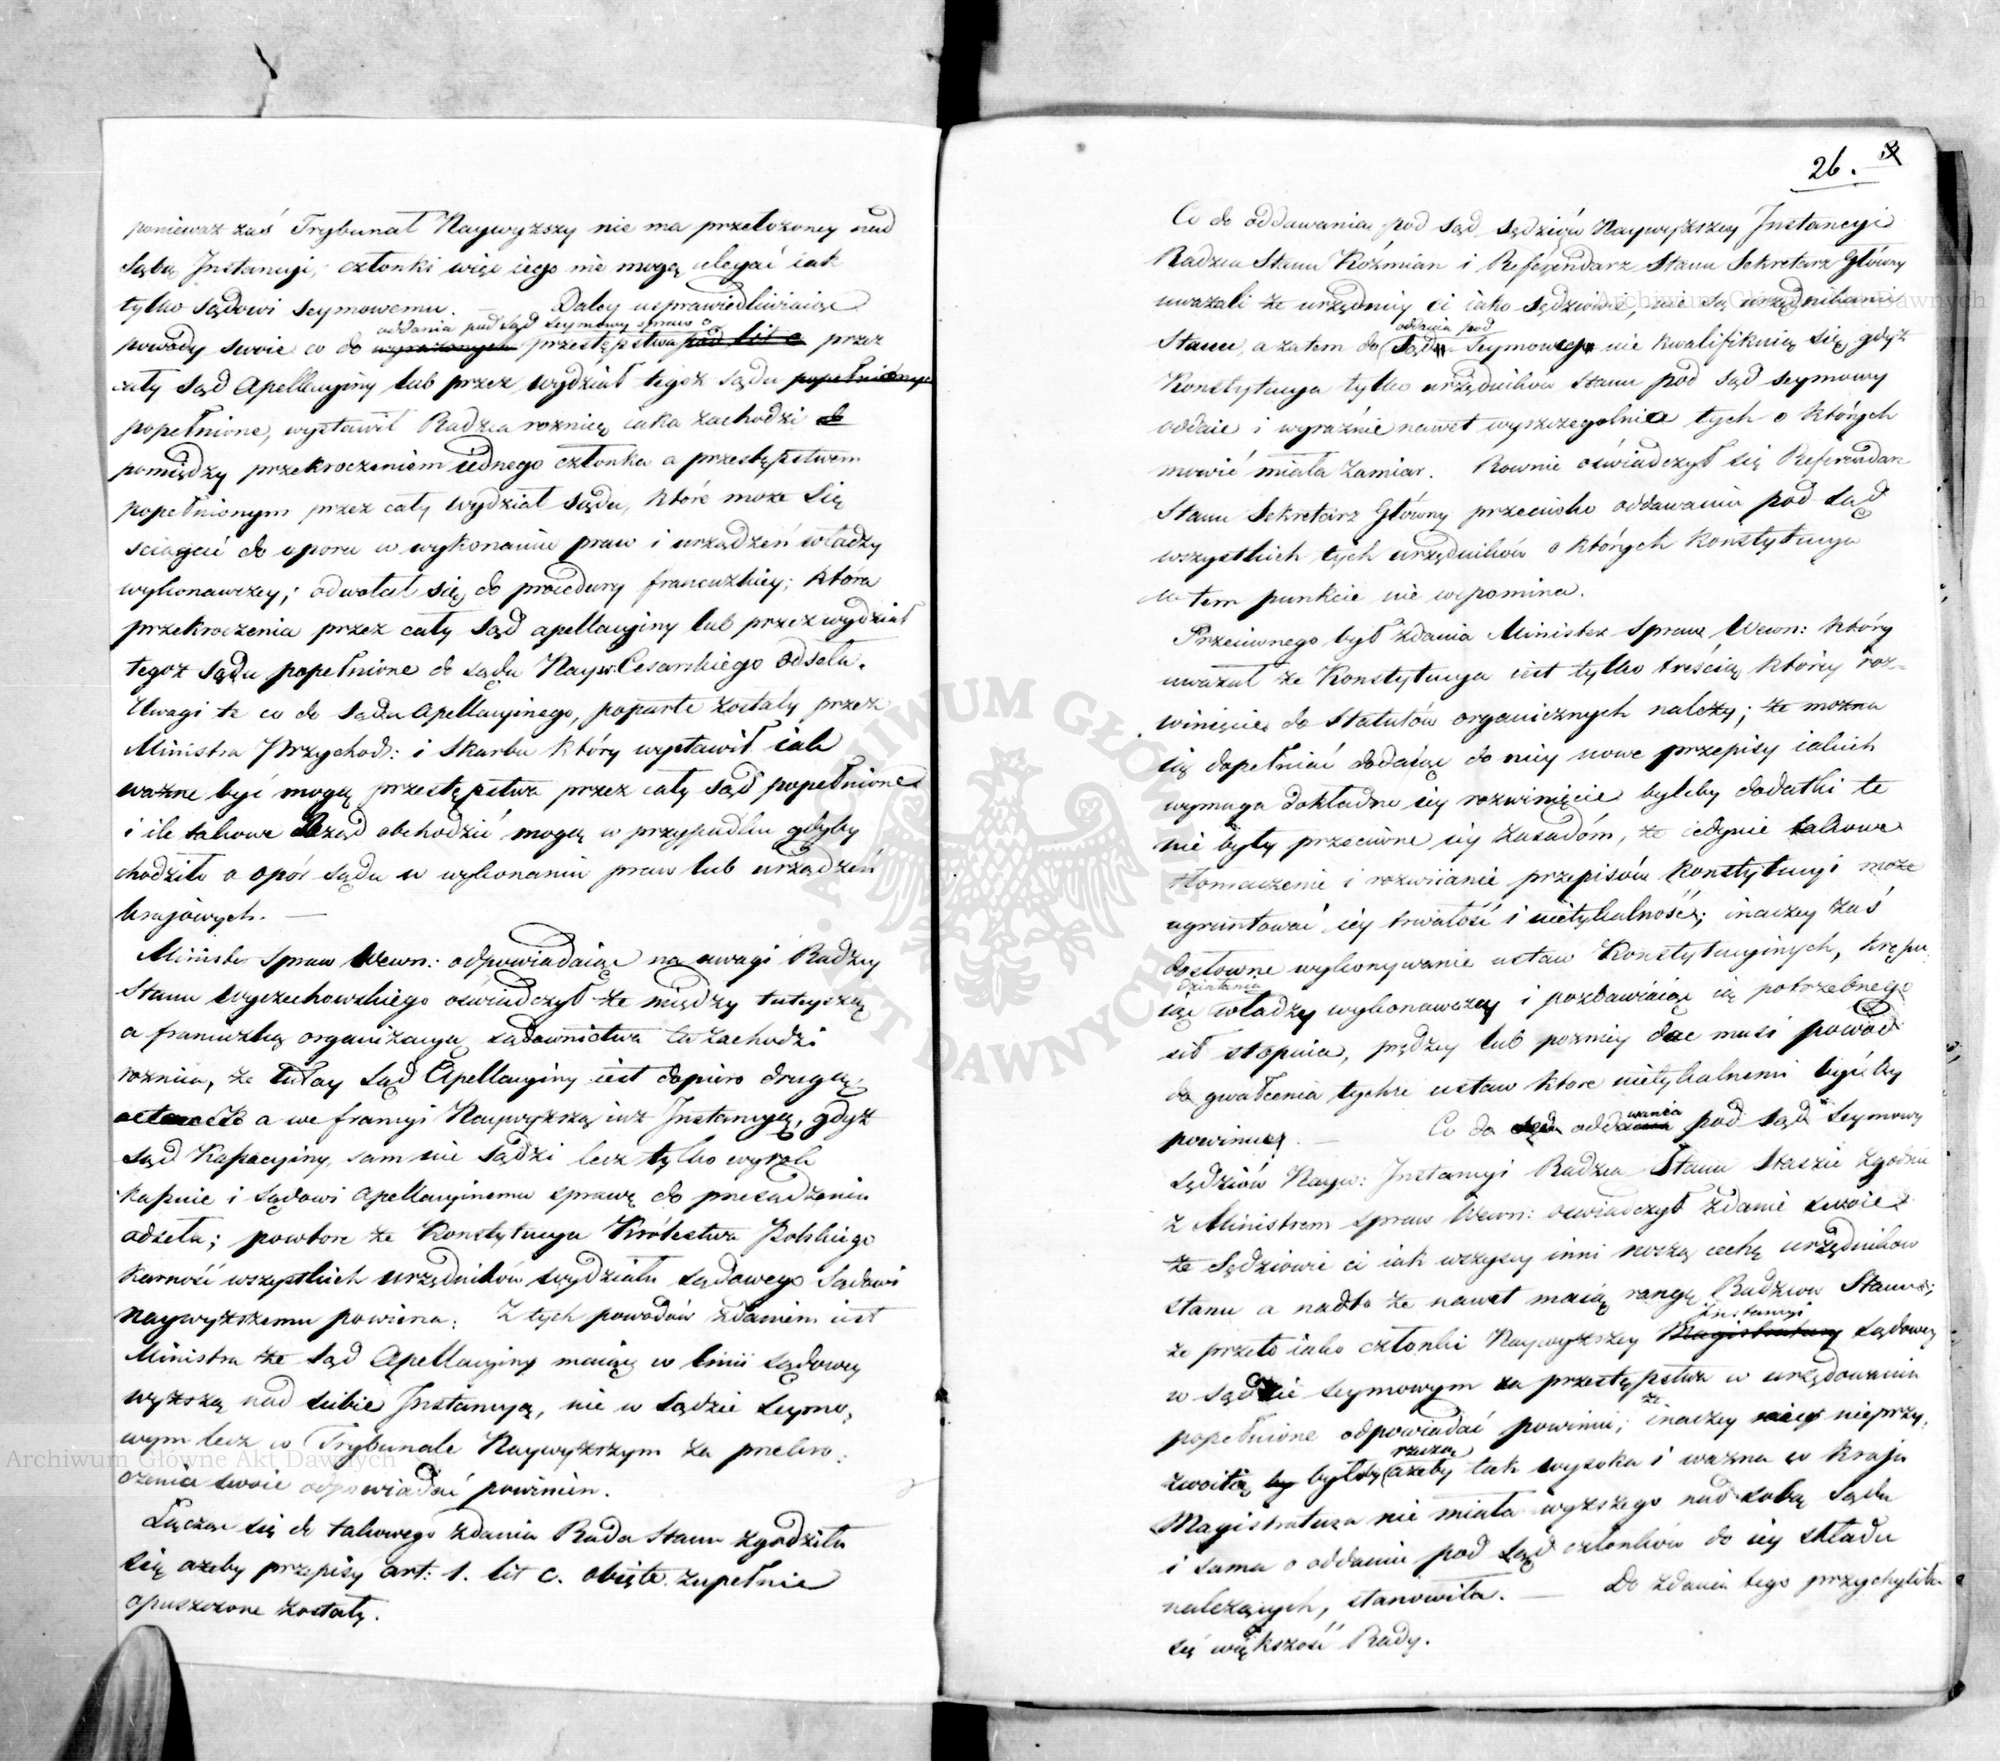 ponieważ zaś Trybunał Naywyższy nie ma przełożoney nad
sobą Instancyi, członki więc iego nie mogą ulegać iak
tylko sądowi seymowemu. — Daley usprawiedliwiaiąc
oddania pod sąd seymowy spraw o
powody swoie co do wyrażonych przestępstwa pod lit c przez
cały sąd Apellacyiny lub przez wydział tegoż sądu popełnionych
popełnione, wystawił Radzca roznicę iaka zachodzi do
pomiędzy przekroczeniem iednego członka a przestępstwem
popełnionym przez cały wydział sądu, które może się
sciągać do oporu w wykonaniu praw i urządzeń władzy
wykonawczey; odwołał się do procedury francuzkiey; która
przekroczenia przez cały sąd apellacyiny lub przez wydział
tegoż sądu popełnione do sądu Nayw: Cesarskiego odseła.
Uwagi te co do sądu Apellacyinego, poparte zostały przez
Ministra Przychod: i Skarbu który wystawił iak
ważne być mogą przestępstwa przez cały sąd popełnione
i ile takowe Rząd obchodzić mogą w przypadku gdyby
chodziło o opór sądu w wykonaniu praw lub urządzeń
kraiowych. —
Minister Spraw Wewn: odpowiadaiąc na uwagi Radzcy
Stanu Wyczechowskiego oświadczył że między tuteyszą
a francuzką organizacyą sądownictwa ta zachodzi
roznica, że tutay Sąd Apellacyiny iest dopiero drugą,
a we francyi Naywyższą iuż Instancyą, gdyż
sąd Kassacyiny, sam nie sądzi lecz tylko wyrok
kassuie i sądowi apellacyinemu sprawę do przesądzenia
odseła; powtore że Konstytucya Królestwa Polskiego
karność wszystkich urzędników wydziału sądowego Sądowi
naywyższemu powierza. Z tych powodów zdaniem iest
Ministra że Sąd Apellacyiny maiący w linii sądowey
wyższą nad sobie Instancyą, nie w sądzie seymo,
wym lecz w Trybunale Naywyższym za przekro:
czenia swoie odpowiadać powinien.
Łącząc się do takowego zdania Rada Stanu zgodziła
się ażeby przepisy art: 1. lit c. obięte zupełnie
opuszczone zostały.
26.
Co do oddawania pod sąd sędziów Naywyższey Instancyi
Radzca Stanu Koźmian i Referendarz Stanu Sekretarz Główny
uważali że urzędnicy ci iako sędziowie, nie są urzędnikami
oddania pod
Stanu, a zatem do Sąd Seymowy nie kwalifikuią się, gdyż
Konstytucya tylko urzędników stanu pod sąd seymowy
oddaie i wyraźnie nawet wyszczegolnia tych o których
mowić miała zamiar. Rownie oświadczył się Referendarz
Stanu Sekretarz Główny przeciwko oddawaniu pod sąd
wszystkich tych urzędników o których Konstytucya
w tem punkcie nie wspomina.
Przeciwnego był zdania Minister spraw Wewn: który
uważał że Konstytucya iest tylko treścią, którey roz-
winięcie do Statutów organicznych należy; że można
ią dopełniać dodaiąc do niey nowe przepisy iakich
wymaga dokładne iey rozwinięcie byleby dodatki te
nie były przeciwne iey zasadóm, że iedynie takowe
tłomaczenie i rozwiianie przepisów Konstytucyi może
ugruntować iey trwałość i nietykalność; inaczey zaś
dosłowne wykonywanie ustaw Konstytucyinych, krępu
działania
iąc władzy wykonawczey i pozbawiaiąc ią potrzebnego
sił stopnia, prędzey lub pozniey dac musi powód
do gwałcenia tychże ustaw ktore nietykalnemi bydźby
powinny. — Co do sąd oddawania pod sąd Seymowy
Sędziów Nayw: Instancyi Radzca Stanu Staszic zgodnie
z Ministrem spraw Wewn: oświadczył zdanie swoie
że Sędziowie ci iak wszyscy inni noszą cechę urzędników
stanu a nadto że nawet maią rangę Radzców Stanu;
Instancyi
że przeto iako członki Naywyższey Magistratury sądowey
w sądzie seymowym za przestępstwa w urzędowaniu
że
popełnione odpowiadać powinni; inaczey nieprzy,
rzeczą
zwoitą by byłoby ażeby tak wysoka i ważna w kraju
Magistratura nie miała wyższego nad sobą sądu
i sama o oddaniu pod sąd członków do iey składu
należących, stanowiła. — Do zdania tego przychyliła
się większość Rady.